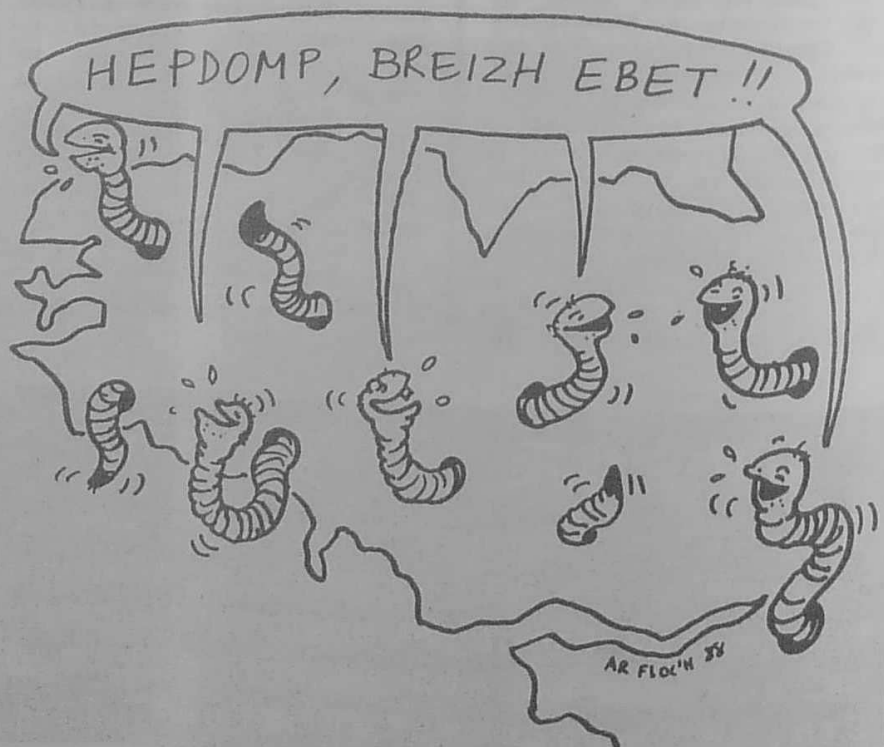 HEPDOMP, BREIZH EBET !!
AR FLOC'H 88